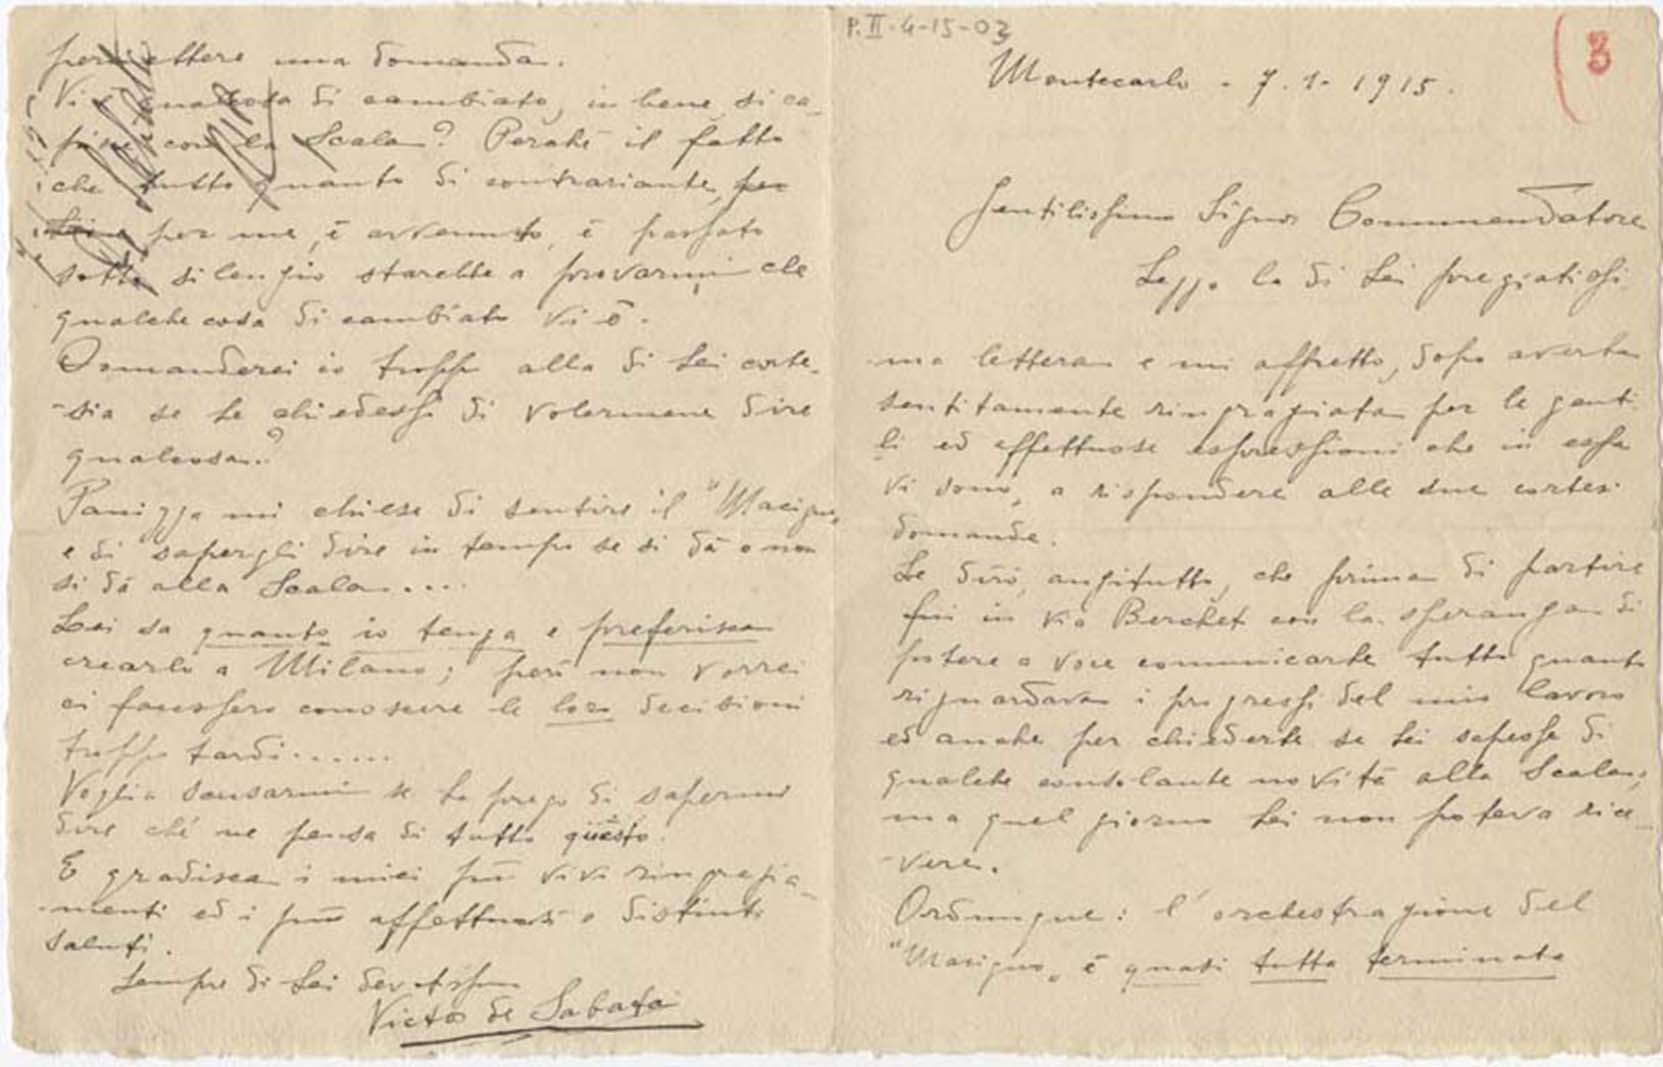 P. II. 4-15-03
3
Montecarlo - 7.1.1915.
Gentilissimo Signor Commendatore
Leggo la di Lei pregiatissi
ma lettera e mi affretto, dopo averla
sentitamente ringraziata per le genti
li ed affettuose espressioni che in essa
vi sono, a rispondere alle due cortesi
domande.
Le dirò, anzitutto, che prima di partire
fui in via Berchet con la speranza di
potere a voce comunicarle tutto quanto
riguardava i progressi del mio lavoro
ed anche per chiederle se Lei sapesse di
qualche consolante novità alla Scala;
ma quel giorno Lei non poteva rice-
vere.
Ordunque: l'orchestrazione del
"Macigno" è quasi tutta terminata
permettere una domanda.
Vi è qualcosa di cambiato, in bene, si ca-
pisce con la Scala? Perchè il fatto
che tutto quanto di contrariante, per
per me, è avvenuto, è passato
sotto silenzio starebbe a provarmi che
qualche cosa di cambiato vi è.
Domanderei io troppo alla di Lei corte-
sia se Le chiedessi di volermene dire
qualcosa..?
Panizza mi chiese di sentire il "Macigno"
e di sapergli dire in tempo se si dà o non
si dà alla Scala....
Lei sa quanto io tenga e preferisca
crearlo a Milano; però non vorrei
ci facessero conoscere le loro decisioni
troppo tardi......
Voglia scusarmi se La prego di sapermi
dire che ne pensa di tutto questo.
E gradisca i miei più vivi ringrazia-
menti ed i più affettuosi e distinti
saluti.
Sempre di Lei devotissimo
Victor de Sabata